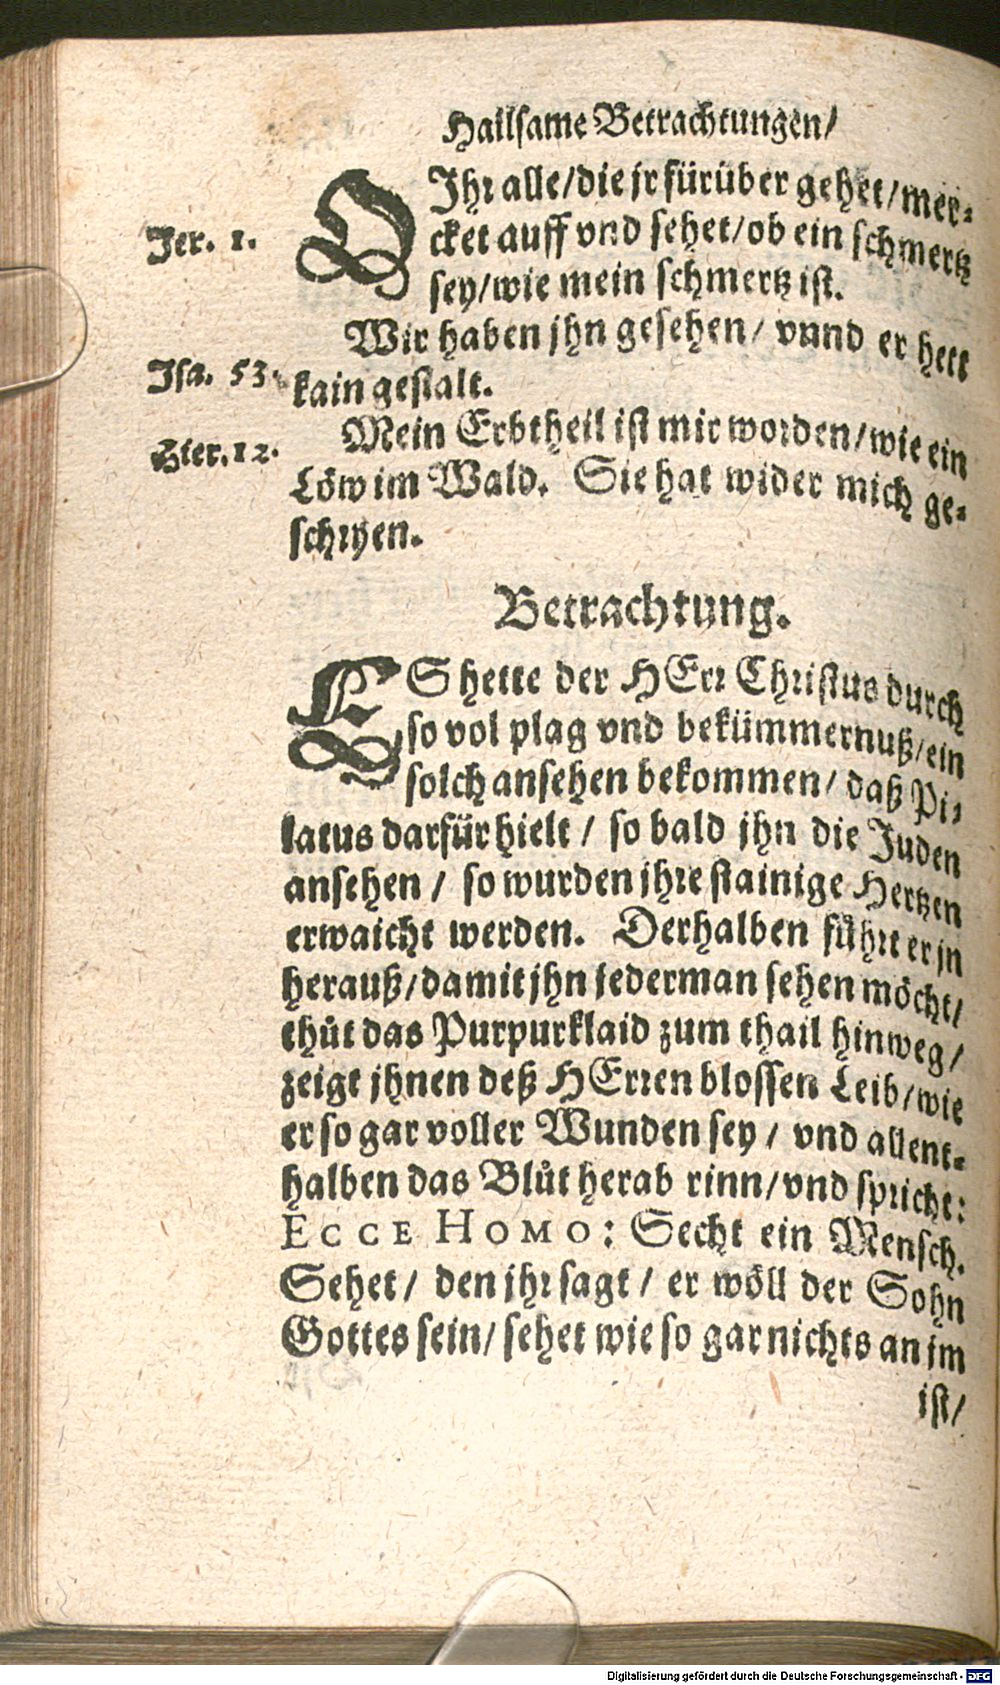 Hailsame Betrachtungen/
O Ihr alle/die jr fürüber gehet/mer-
Jer. 1.
cket auff vnd sehet/ob ein schmertz
sey/wie mein schmertz ist.
Wir haben jhn gesehen/ vnnd er hett
Isa. 53.
kain gestalt.
Mein Erbtheil ist mir worden/wie ein
Hier. 12.
Löw im Wald. Sie hat wider mich ge-
schryen.
Betrachtung.
ES hette der HErr Christus durch
so vol plag vnd bekümmernuß/ein
solch ansehen bekommen/ daß Pi-
latus darfür hielt / so bald jhn die Juden
ansehen / so wurden jhre stainige Hertzen
erwaicht werden. Derhalben fůhrt er jn
herauß/damit jhn jederman sehen möcht/
thůt das Purpurklaid zum thail hinweg/
zeigt jhnen deß HErren blossen Leib/wie
er so gar voller Wunden sey / vnd allent-
halben das Blůt herab rinn/vnd spricht:
ECCE HOMO: Secht ein Mensch.
Sehet/ den jhr sagt / er wöll der Sohn
Gottes sein/ sehet wie so gar nichts an jm
ist/
Digitalisierung gefördert durch die Deutsche Forschungsgemeinschaft - DFG